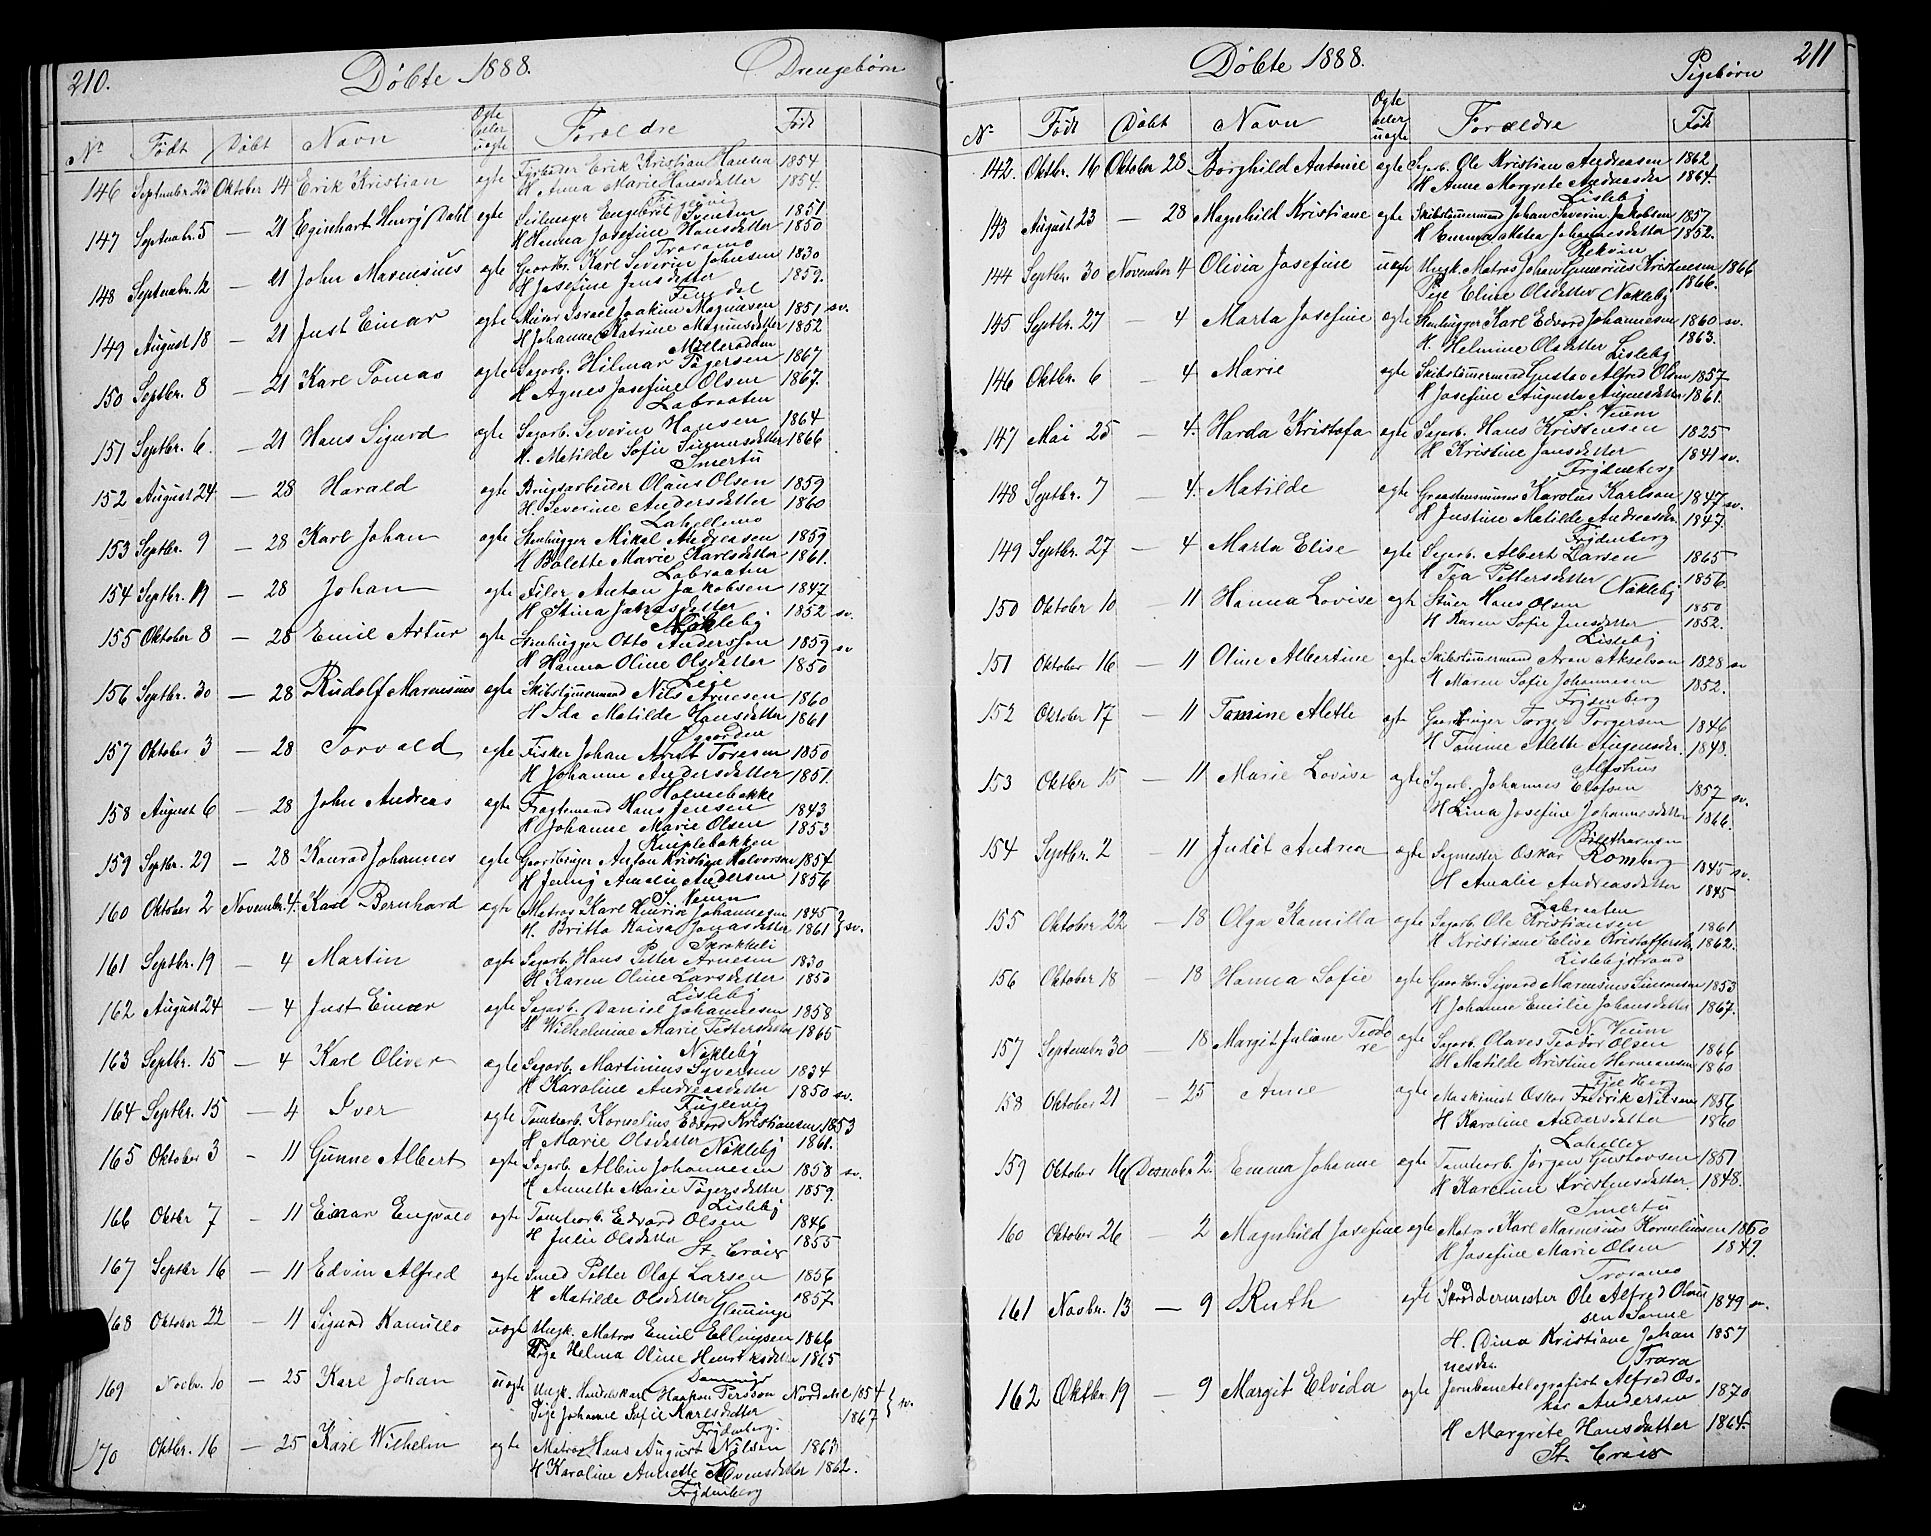 210.
Døbte 1888.
Drengebørn
Nº Født Døbt Navn Ægte eller uægte Forældre Født
146 Septembr. 23 Oktober 14 Erik Kristian ægte Fyrbøder Erik Kristian Hansen 1854
H Anna Marie Hansdatter 1854.
Fuglevig
147 Septembr. 5 — 21 Eginhart Henry Dahl ægte Seilmager Engebret Svensen 1851.
H Hanna Josefine Hansdatter 1850
Traramo
148 Septembr. 12 — 21 John Marensius ægte Karl Severin Johnsen 1830
H Josefine Jensdatter 1859.
149 August 18 — 21 Just Einar ægte Murer Israel Joakim Magnusen 1851 sv.
H Johanne Katrine Magnusdatter 1852
150 Septbr. 8 — 21 Karl Tomas ægte Sagarb. Hilmar Tøgersen 1867
H Agnes Josefine Olsen 1867.
Labraaten
151 Septbr. 6. — 21 Hans Sigurd ægte Sagarb. Severin Hansen 1864
H. Matilde Sofie 1866
Smertu
152 August 24 — 28 Harald ægte Brugsarbeider Olaus Olsen 1859
H. Severine Andersdatter 1860
Lahellemo
153 Septbr. 9 — 28 Karl Johan ægte Stenhugger Mikal Andreasen 1859
H Bolette Marie Karlsdatter 1861.
Labraaten
154 Septbr. 19 — 28 Johan ægte Filer Anton Jakobsen 1847
H Stina Jakobsdatter 1852 sv.
Nøkleby
155 Oktober 8 — 28 Emil Artur ægte Stenhugger Otto Andersson 1859 sv
H Hanna Oline Olsdatter 1850
Leie
156 Septbr. 30 — 28 Rudolf Marensius ægte Skibstømermand Nils Arnesen 1860
H Ida Matilde Hansdatter 1861
157 Oktober 3 — 28 Torvald ægte Fisker Johan Arnt Toresen 1850
H Johanne Andersdatter 1851.
Holmebakke
158 August 6 — 28 John Andreas ægte Fragtemand Hans Jensen 1843
H Johanne Marie Olsen 1853
Kniplebakken
159 Septbr. 29 — 28 Konrad Johannes ægte Anton Kristian Halvorsen 1854
H Jenny Amalie Andersen 1856
N. Veum
160 Oktober 2 November 4. Karl Bernhard ægte Matros Karl Henrik Johannesen 1845 } sv.
H. Britta Kaisa Jonasdatter 1861
Skrakkeli
161 Septbr. 19 — 4 Martin ægte Sagarb. Hans Petter Arnesen 1830
H Karen Oline Larsdatter 1850
Lisleby
162 August 24 — 4 Just Einar ægte Sagarb. Daniel Johannesen 1858
H Wilhelmine Marie Pettersdatter 1865
Nøkleby
163 Septbr. 15 — 4 Karl Oliver ægte Sagarb. Martinius Syversen 1834
H Karoline Andreasdatter 1850 sv.
Fuglevig
164 Septbr. 15 — 4 Iver ægte Tomtearb. Kornelius Edvard Kristiansen 1853
H Marie Olsdatter 1861.
Nøkleby
165 Oktober 3 — 11 Gunne Albert ægte Sagarb. Albin Johannesen 1858 sv.
H Annette Marie Tøgersdatter 1859.
Lisleby
166 Oktbr 7 — 11 Einar Engvald ægte Tomtearb. Edvard Olsen 1846
H Julie Olsdatter 1855
St. Croix
167 Septbr 16 — 11 Edvin Alfred ægte Smed Petter Olaf Larsen 1856
H Matilde Olsdatter 1857
Glemminge
168 Oktober 22 — 11 Sigurd Kamillo uægte Ungk. Matros Emil Ellingsen 1866
Pige Helma Oline Henriksdatter 1865
169 Novbr. 10 — 25 Karl Johan uægte Ungk. Handelskarl Haakon Persson Nordahl 1854 } sv.
Pige Johanne Sofie Karlsdatter 1867
Frydenberg.
170 Oktbr. 16 — 25 Karl Wilhelm ægte Matros Hans August Nilsen 1863
H Karoline Annette Svensdatter 1862.
Frydenberg
211
Døbte 1888.
Pigebørn
Nº Født Døbt Navn Ægte eller uægte Forældre Født
142. Oktbr. 16 Oktober 28 Borghild Antonie ægte Sagarb. Ole Kristian Andreasen 1862
H Anne Margrete Andreasdtr 1864.
Lisleby
143 August 23 — 28 Magnhild Kristiane ægte Skibstømermand Johan Severin Jakobsen 1857
H Emma Matea Johannesdatter 1852.
Rekvin
144 Septbr. 30 November 4 Olivia Josefine uægte Ungk. Matros Johan Gunerius Kristensen 1866
Pige Eline Olsdatter Nøkleby 1866.
145 Septbr. 27 — 4 Marta Josefine ægte Stenhugger Karl Edvard Johannesen 1860 sv.
H. Helmine Olsdatter 1863.
Lisleby
146 Oktbr. 6 — 4 Marie ægte Skibstømermand Gustav Alfred Olsen 1857
H Josefine Augusta Augustdatter 1861.
N. Veum
147 Mai 25 — 4. Harda Kristofa ægte Sagarb. Hans Kristensen 1825
H Kristine Jansdatter 1841 sv.
Frydenberg
148 Septbr. 7 — 4. Matilde ægte Karolus Karlson 1847 sv.
H Justine Matilde Andreasdr. 1847.
Frydenberg
149 Septbr. 27 — 4 Marta Elise ægte Sagarb. Albert Larsen 1865
H Tea Pettersdatter Nøkleby 1856.
150 Oktober 10 — 11 Hanna Lovise ægt Stuer Hans Olsen 1850
H Karen Sofie Jensdatter 1852.
Lisleby
151 Oktober 16 — 11 Oline Albertine ægte Skibstømermand Aron Akselson 1828 sv
H Maren Sofie Johannesen 1852.
Frydenberg
152 Oktober 17 — 11 Tomine Alette ægte Torger Torgersen 1846
H Tomine Alette 1848.
Alfshus
153 Oktbr 15 — 11 Marie Lovise ægte Sagarb. Johannes Elofsen 1857 sv.
H Lina Josefine Johannesdatter 1866.
154 Septbr. 2 — 11 Judit Andrea ægte Sagmester Oskar Romberg 1845 sv.
H Amalie Andreasdatter 1845
Labraaten
155 Oktober 22 — 18 Olga Kamilla ægte Sagarb. Ole Kristiansen 1861
H Kristiane Elise Kristoffersdr. 1862.
Lislebystrand
156 Oktober 18 — 18 Hanna Sofie ægte Sigvard Marensius Simensen 1853
H Johanne Emilie Johansdatter 1867.
N. Veum
157 September 30 — 18 Margit Juliane Teodore ægte Sagarb. Olaves Teodor Olsen 1866
H Matilde Kristine Hermansen 1860
Fjelberg
158 Oktober 21 — 25 Anne ægte Maskinist Oskar Fredrik Nilsen 1856
H Karoline Andersdatter 1860
Lahelle
159 Oktober 16 Desember 2. Emma Johanne ægte Tomtearb. Jørgen Gustavsen 1851
H Karoline Kristensdatter. 1848.
Smertu
160 Oktober 26 — 2 Magnhild Josefine ægte Matros Karl Marensius Korneliusen 1850
H Josefine Marie Olsen 1849.
Traramo
161 Novbr. 13 — 9 Ruth ægte Skræddermester Ole Alfred Olaus 1849 sv.
sen Sanne
H. Dina Kristiane Johan 1857
nesdtr. Trara
162 Oktbr. 19 — 9 Margit Elvida ægte Jernbanetelegrafist Alfred Os- 1870
kar Andersen
H Margrete Hansdatter 1864.
St. Croix